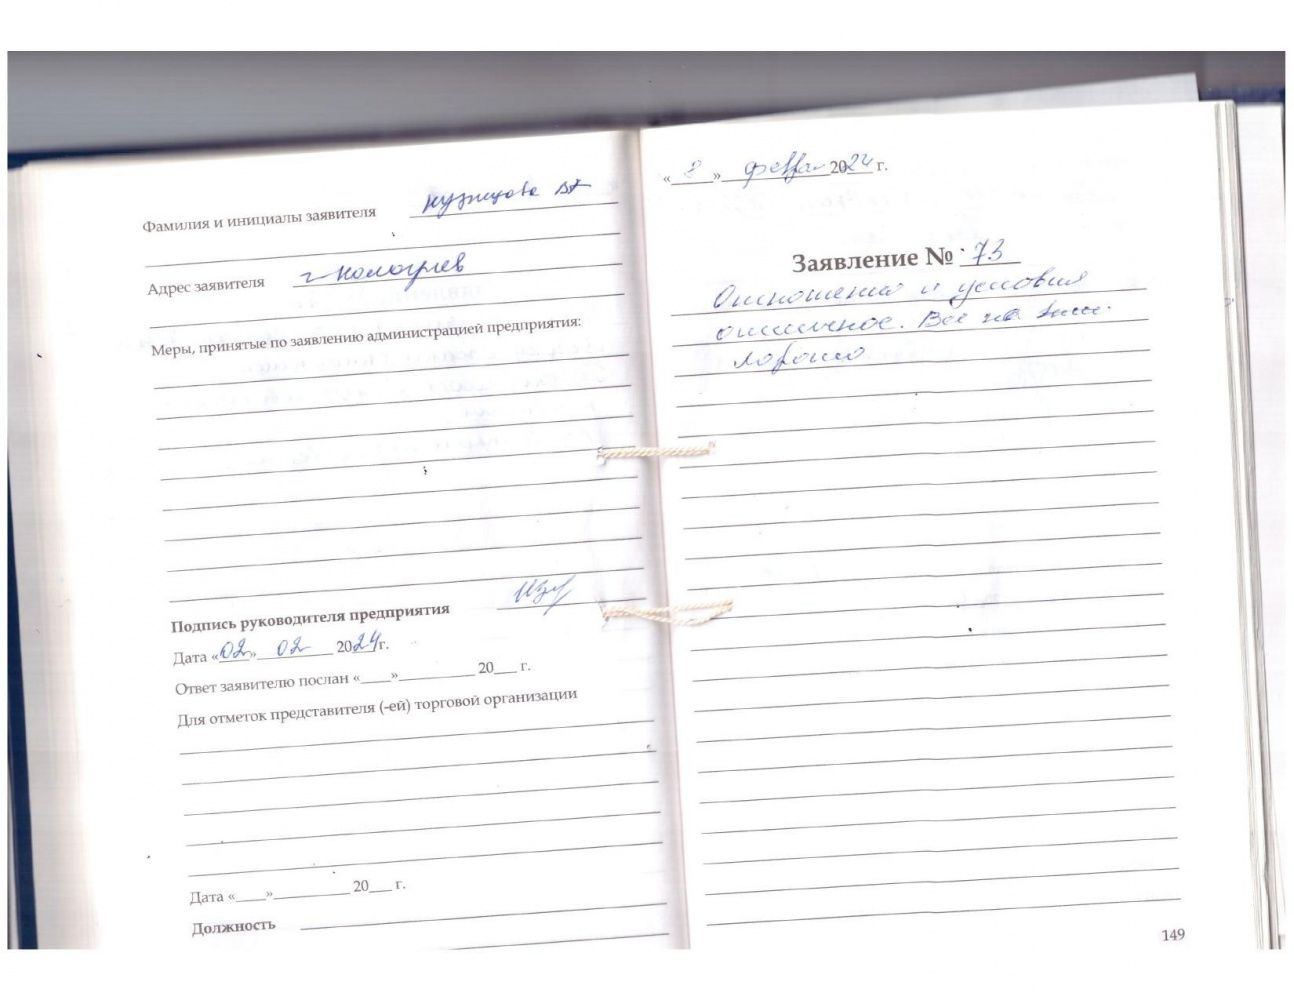 Фамилия и инициалы заявителя Кузнецова
Адрес заявителя г Кологрив
Меры, принятые по заявлению администрацией предприятия:
Подпись руководителя предприятия
Дата «02» 02 2024г.
Ответ заявителю послан «____»__________ 20___ г.
Для отметок представителя (-ей) торговой организации
Дата «____»__________ 20___ г.
Должность
« 8 » февр 2024 г.
Заявление № 73
Отношения и условия
отличное. Все на высш.
хорошо
149